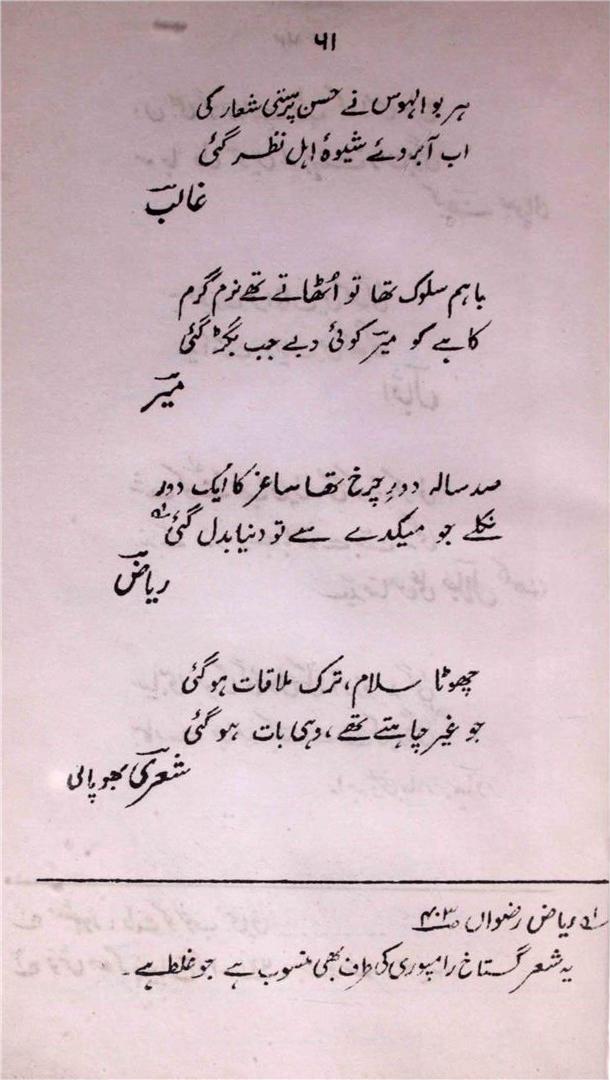 ۶۱
ہر بوالہوس نے حسن پرستی شعار کی
اب آبروئے شیوۂ اہل نظر گئی
غالبؔ
باہم سلوک تھا تو اُٹھاتے تھے نرم گرم
کاہے کو میرؔ کوئی دبے جب بگڑ گئی
میرؔ
صد سالہ دورِ چرخ تھا ساغر کا ایک دور
نکلے جو میکدے سے تو دنیا بدل گئی ؎۱
ریاضؔ
چھوٹا سلام، ترک ملاقات ہو گئی
جو غیر چاہتے تھے، وہی بات ہو گئی
شعریؔ بھوپالی
؎۱ ریاض رضواں ص۴۰۳
یہ شعر گستاخ رامپوری کی طرف بھی منسوب ہے جو غلط ہے۔